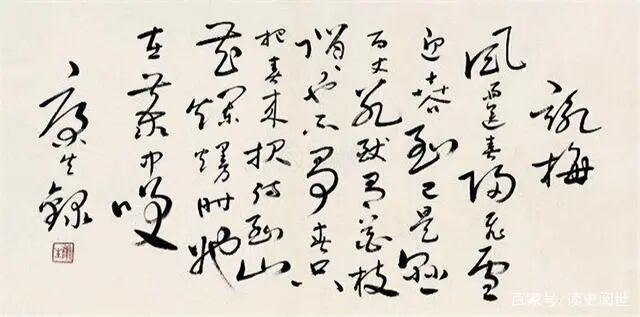 詠梅
風雨送春歸飛雪
迎春到已是懸
百丈冰猶有花枝
俏々也不爭春只
把春來報待到山
花爛熳時她
在叢中咲
康生錄
百家号/读史阅世